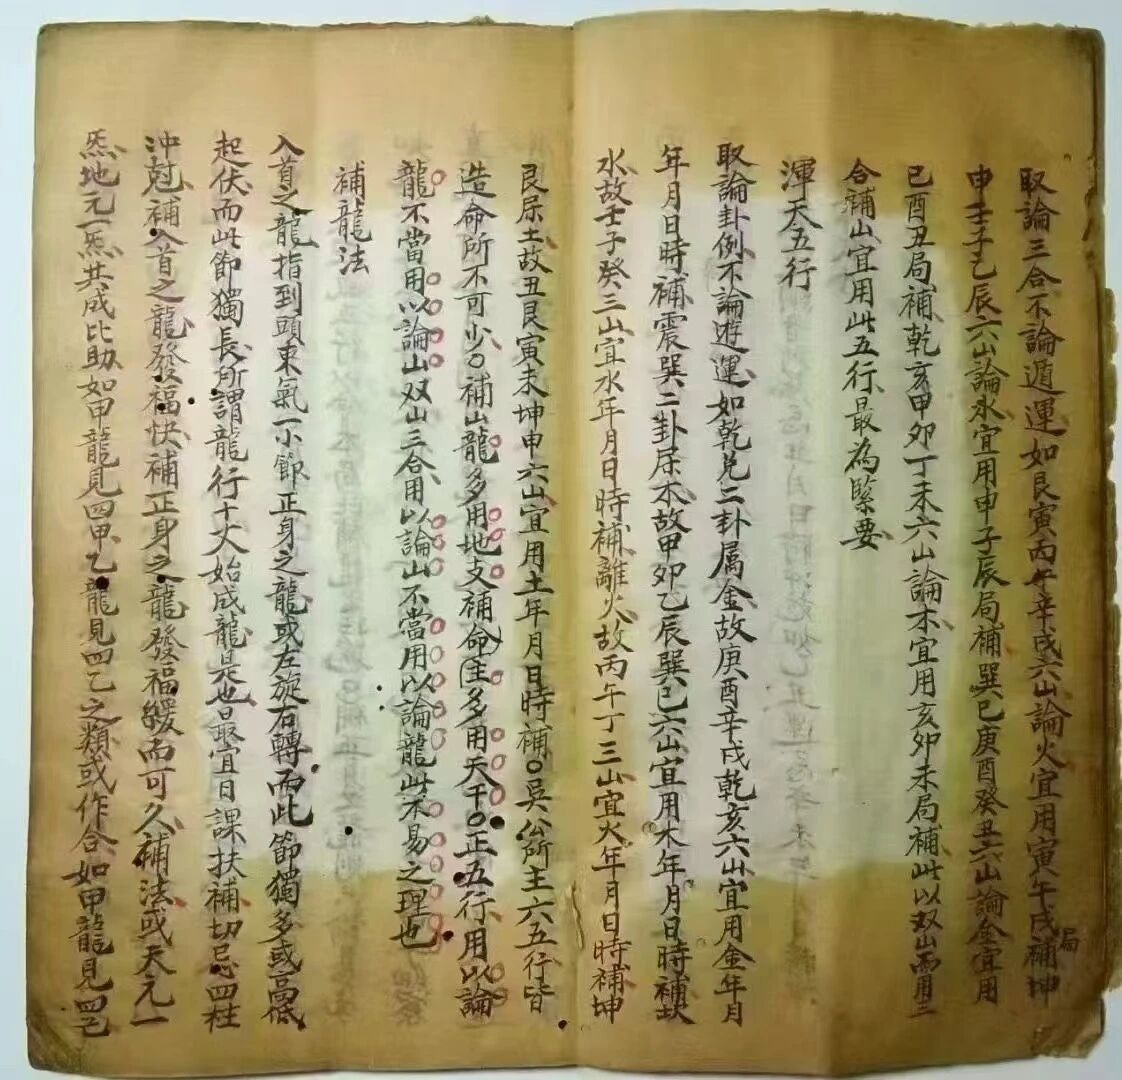 取論三合不論遁運如艮寅丙午辛戌六山論火宜用寅午戌局補坤
申壬子乙辰六山論水宜用申子辰局補巽巳庚酉癸丑六山論金宜用
巳酉丑局補乾亥甲卯丁未六山論木宜用亥卯未局補此以双山而用三
合補山宜用此五行最為緊要
渾天五行
取論卦例不論遊運如乾兌二卦屬金故庚酉辛戌乾亥六山宜用金年月
年月日時補震巽二卦屈木故甲卯乙辰巽巳六山宜用木年月日時補坎
水故壬子癸三山宜水年月日時補離火故丙午丁三山宜火年月日時補坤
艮屈土故丑艮寅未坤申六山宜用土年月日時補〇吳公所主六五行皆
造命所不可少〇補山龍多用地支補命主多用天干〇正五行用以論
龍不當用以論山双山三合用以論山不當用以論龍此不易之理也
補龍法
入首之龍指到頭束氣一小節正身之龍或左旋右轉而此節獨多或高低
起伏而此節獨長所謂龍行十丈始成龍是也最宜日課扶補切忌四柱
沖尅補入首之龍發福快補正身之龍發福緩而可久補法或天元一
炁地元一炁共成比助如甲龍見四甲乙龍見四乙之類或作合如甲龍見四己